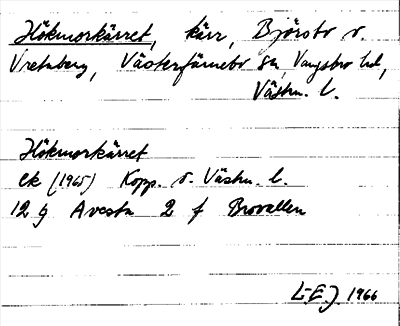 Hökmorkärret, kärr, Björsbo o.
Vretaberg, Västerfärnebo sn, Vangsbro hd,
Västm. l.
Hökmorkärret
Ek (1965) Kopp. o. Västm. l.
12 g Avesta 2 f Brovallen
L-E.J. 1966